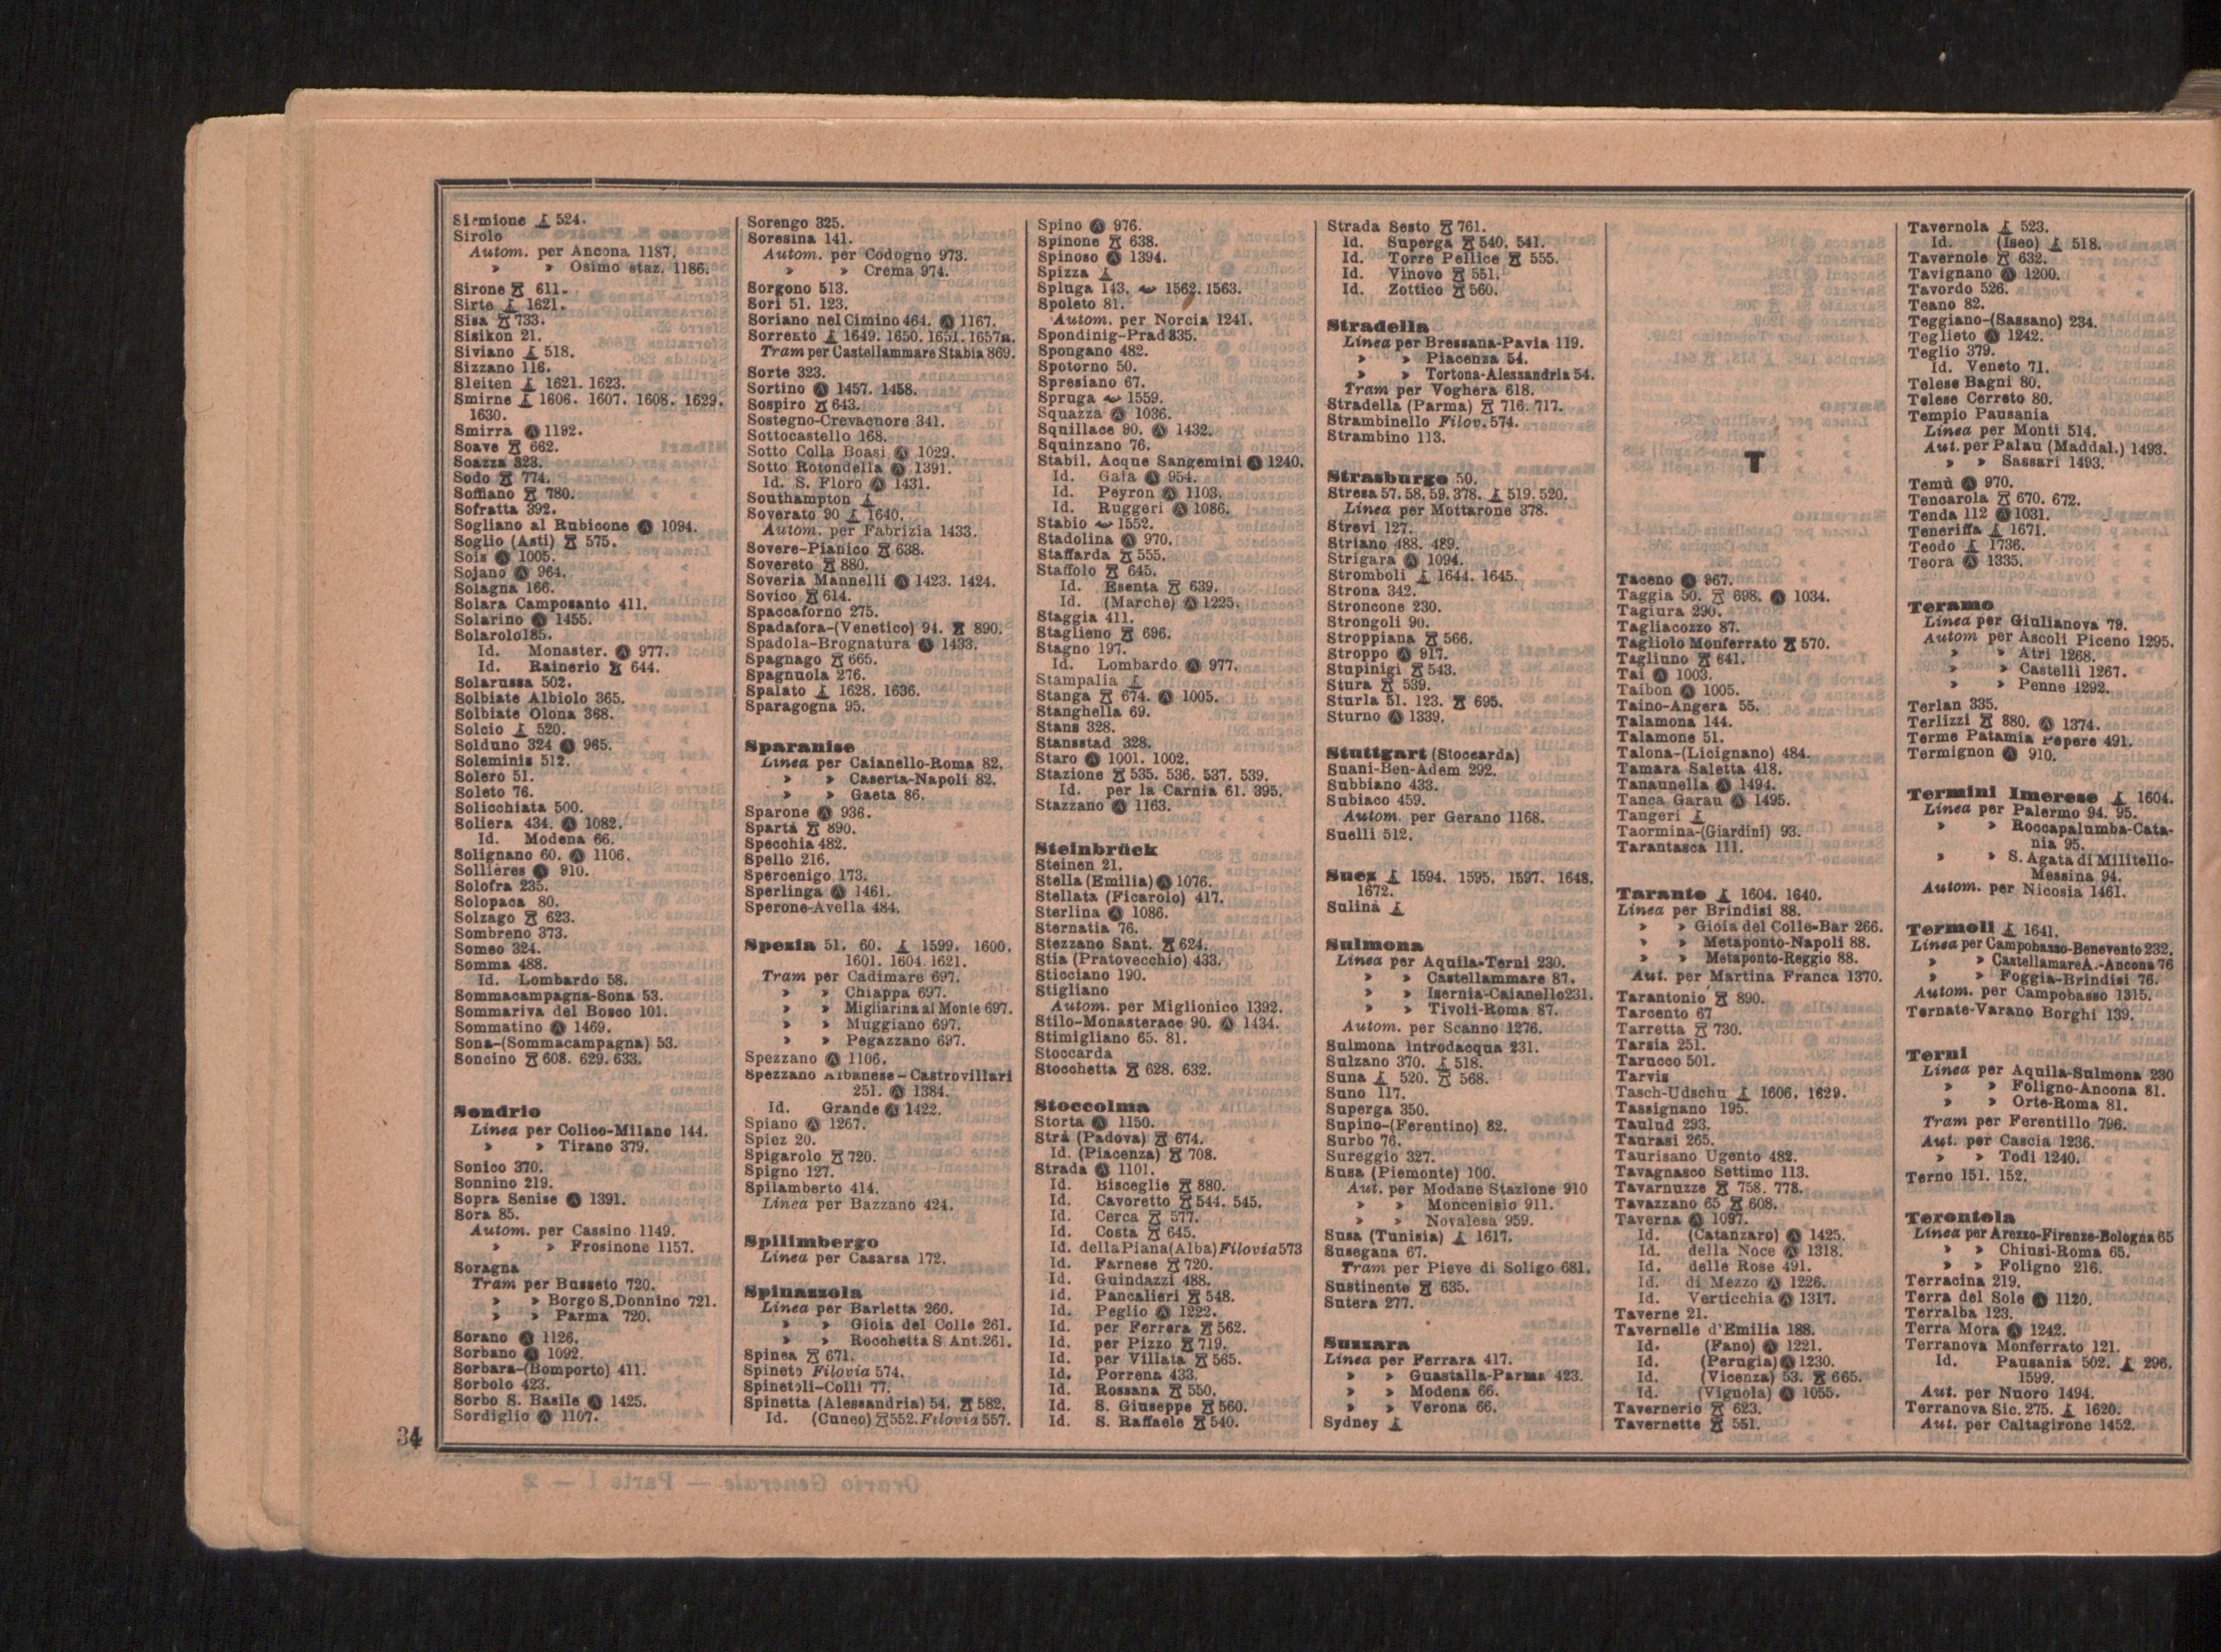 Sirmione 524.
Sirolo
Autom. per Ancona 1187.
» » Osimo staz. 1186.
Sirone 611.
Sirte 1621.
Sisa 733.
Sisikon 21.
Siviano 518.
Sizzano 116.
Sleiten 1621. 1623.
Smirne 1606. 1607. 1608. 1629.
1630.
Smirra A 1192.
Soave 662.
Soazza 323.
Sodo 774.
Soffiano 780.
Sofratta 392.
Sogliano al Rubicone A 1094.
Soglio (Asti) 575.
Sois A 1005.
Sojano A 964.
Solagna 166.
Solara Camposanto 411.
Solarino A 1455.
Solarolo 185.
Id. Monaster. A 977.
Id. Rainerio 644.
Solarussa 502.
Solbiate Albiolo 365.
Solbiate Olona 368.
Solcio 520.
Solduno 324 A 965.
Soleminis 512.
Solero 51.
Soleto 76.
Solicchiata 500.
Soliera 434. A 1082.
Id. Modena 66.
Solignano 60. A 1106.
Sollières A 910.
Solofra 235.
Solopaca 80.
Solzago 623.
Sombreno 373.
Someo 324.
Somma 488.
Id. Lombardo 58.
Sommacampagna-Sona 53.
Sommariva del Bosco 101.
Sommatino A 1469.
Sona-(Sommacampagna) 53.
Soncino 608. 629. 633.
Sondrio
Linea per Colico-Milano 144.
» » Tirano 379.
Sonico 370.
Sonnino 219.
Sopra Senise A 1391.
Sora 85.
Autom. per Cassino 1149.
» » Frosinone 1157.
Soragna
Tram per Busseto 720.
» » Borgo S. Donnino 721.
» » Parma 720.
Sorano A 1126.
Sorbano A 1092.
Sorbara-(Bomporto) 411.
Sorbolo 423.
Sorbo S. Basile A 1425.
Sordiglio A 1107.
Sorengo 325.
Soresina 141.
Autom. per Codogno 973.
» » Crema 974.
Sorgono 513.
Sori 51. 123.
Soriano nel Cimino 464. A 1167.
Sorrento 1649. 1650. 1651. 1657a.
Tram per Castellammare Stabia 869.
Sorte 323.
Sortino A 1457. 1458.
Sospiro 643.
Sostegno-Crevacuore 341.
Sottocastello 168.
Sotto Colla Boasi A 1029.
Sotto Rotondella A 1391.
Id. S. Floro A 1431.
Southampton
Soverato 90 1640.
Autom. per Fabrizia 1433.
Sovere-Pianico 638.
Sovereto 880.
Soveria Mannelli A 1423. 1424.
Sovico 614.
Spaccaforno 275.
Spadafora-(Venetico) 94. 890.
Spadola-Brognatura A 1433.
Spagnago 665.
Spagnuola 276.
Spalato 1628. 1636.
Sparagogna 95.
Sparanise
Linea per Caianello-Roma 82.
» » Caserta-Napoli 82.
» » Gaeta 86.
Sparone A 936.
Spartà 890.
Specchia 482.
Spello 216.
Spercenigo 173.
Sperlinga A 1461.
Sperone-Avella 484.
Spezia 51. 60. 1599. 1600.
1601. 1604. 1621.
Tram per Cadimare 697.
» » Chiappa 697.
» » Migliarina al Monte 697.
» » Muggiano 697.
» » Pegazzano 697.
Spezzano A 1106.
Spezzano Albanese-Castrovillari
251. A 1384.
Id. Grande A 1422.
Spiano A 1267.
Spiez 20.
Spigarolo 720.
Spigno 127.
Spilamberto 414.
Linea per Bazzano 424.
Spilimbergo
Linea per Casarsa 172.
Spinazzola
Linea per Barletta 260.
» » Gioia del Colle 261.
» » Rocchetta S Ant. 261.
Spinea 671.
Spineto Filovia 574.
Spinetoli-Colli 77.
Spinetta (Alessandria) 54. 582.
Id. (Cuneo) 552. Filovia 557.
Spino A 976.
Spinone 638.
Spinoso A 1394.
Spizza
Spluga 143. 1562. 1563.
Spoleto 81.
Autom. per Norcia 1241.
Spondinig-Prad 335.
Spongano 482.
Spotorno 50.
Spresiano 67.
Spruga 1559.
Squazza A 1036.
Squillace 90. A 1432.
Squinzano 76.
Stabil. Acque Sangemini A 1240.
Id. Gaia A 954.
Id. Peyron A 1103.
Id. Ruggeri A 1086.
Stabio 1552.
Stadolina A 970.
Staffarda 555.
Staffolo 645.
Id. Esenta 639.
Id. (Marche) A 1225.
Staggia 411.
Staglieno 696.
Stagno 197.
Id. Lombardo A 977.
Stampalia
Stanga 674. A 1005.
Stanghella 69.
Stans 328.
Stansstad 328.
Staro A 1001. 1002.
Stazione 535. 536. 537. 539.
Id. per la Carnia 61. 395.
Stazzano A 1163.
Steinbrück
Steinen 21.
Stella (Emilia) A 1076.
Stellata (Ficarolo) 417.
Sterlina A 1086.
Sternatia 76.
Stezzano Sant. 624.
Stia (Pratovecchio) 433.
Sticciano 190.
Stigliano
Autom. per Miglionico 1392.
Stilo-Monasterace 90. A 1434.
Stimigliano 65. 81.
Stoccarda
Stocchetta 628. 632.
Stoccolma
Storta A 1150.
Strà (Padova) 674.
Id. (Piacenza) 708.
Strada A 1101.
Id. Bisceglie 880.
Id. Cavoretto 544. 545.
Id. Cerca 577.
Id. Costa 645.
Id. della Piana (Alba) Filovia 573
Id. Farnese 720.
Id. Guindazzi 488.
Id. Pancalieri 548.
Id. Peglio A 1222.
Id. per Ferrera 562.
Id. per Pizzo 719.
Id. per Villata 565.
Id. Porrena 433.
Id. Rossana 550.
Id. S. Giuseppe 560.
Id. S. Raffaele 540.
Strada Sesto 761.
Id. Superga 540. 541.
Id. Torre Pellice 555.
Id. Vinovo 551.
Id. Zottico 560.
Stradella
Linea per Bressana-Pavia 119.
» » Piacenza 54.
» » Tortona-Alessandria 54.
Tram per Voghera 618.
Stradella (Parma) 716. 717.
Strambinello Filov. 574.
Strambino 113.
Strasburgo 50.
Stresa 57. 58. 59. 378. 519. 520.
Linea per Mottarone 378.
Strevi 127.
Striano 488. 489.
Strigara A 1094.
Stromboli 1644. 1645.
Strona 342.
Stroncone 230.
Strongoli 90.
Stroppiana 566.
Stroppo A 917.
Stupinigi 543.
Stura 539.
Sturla 51. 123. 695.
Sturno A 1339.
Stuttgart (Stoccarda)
Suani-Ben-Adem 292.
Subbiano 433.
Subiaco 459.
Autom. per Gerano 1168.
Suelli 512.
Suez 1594. 1595. 1597. 1648.
1672.
Sulinà
Sulmona
Linea per Aquila-Terni 230.
» » Castellammare 87.
» » Isernia-Caianello 231.
» » Tivoli-Roma 87.
Autom. per Scanno 1276.
Sulmona Introdacqua 231.
Sulzano 370. 518.
Suna 520. 568.
Suno 117.
Superga 350.
Supino-(Ferentino) 82.
Surbo 76.
Sureggio 327.
Susa (Piemonte) 100.
Aut. per Modane Stazione 910
» » Moncenisio 911.
» » Novalesa 959.
Susa (Tunisia) 1617.
Susegana 67.
Tram per Pieve di Soligo 681.
Sustinente 635.
Sutera 277.
Suzzara
Linea per Ferrara 417.
» » Guastalla-Parma 423.
» » Modena 66.
» » Verona 66.
Sydney
T
Taceno A 967.
Taggia 50. 698. A 1034.
Tagiura 290.
Tagliacozzo 87.
Tagliolo Monferrato 570.
Tagliuno 641.
Tai A 1003.
Taibon A 1005.
Taino-Angera 55.
Talamona 144.
Talamone 51.
Talona-(Licignano) 484.
Tamara Saletta 418.
Tanaunella A 1494.
Tanca Garau A 1495.
Tangeri
Taormina-(Giardini) 93.
Tarantasca 111.
Taranto 1604. 1640.
Linea per Brindisi 88.
» » Gioia del Colle-Bar 266.
» » Metaponto-Napoli 88.
» » Metaponto-Reggio 88.
Aut. per Martina Franca 1370.
Tarantonio 890.
Tarcento 67
Tarretta 730.
Tarsia 251.
Tarucco 501.
Tarvis
Tasch-Udschu 1606. 1629.
Tassignano 195.
Taulud 293.
Taurasi 265.
Taurisano Ugento 482.
Tavagnasco Settimo 113.
Tavarnuzze 758. 778.
Tavazzano 65 608.
Taverna A 1097.
Id. (Catanzaro) A 1425.
Id. della Noce A 1318.
Id. delle Rose 491.
Id. di Mezzo A 1226.
Id. Verticchia A 1317.
Taverne 21.
Tavernelle d'Emilia 188.
Id. (Fano) A 1221.
Id. (Perugia) A 1230.
Id. (Vicenza) 53. 665.
Id. (Vignola) A 1055.
Tavernerio 623.
Tavernette 551.
Tavernola 523.
Id. (Iseo) 518.
Tavernole 632.
Tavignano A 1200.
Tavordo 526.
Teano 82.
Teggiano-(Sassano) 234.
Teglieto A 1242.
Teglio 379.
Id. Veneto 71.
Telese Bagni 80.
Telese Cerreto 80.
Tempio Pausania
Linea per Monti 514.
Aut. per Palau (Maddal.) 1493.
» » Sassari 1493.
Temù A 970.
Tencarola 670. 672.
Tenda 112 A 1031.
Teneriffa 1671.
Teodo 1736.
Teora A 1335.
Teramo
Linea per Giulianova 79.
Autom per Ascoli Piceno 1295.
» » Atri 1268.
» » Castelli 1267.
» » Penne 1292.
Terlan 335.
Terlizzi 880. A 1374.
Terme Patamia Pepere 491.
Termignon A 910.
Termini Imerese 1604.
Linea per Palermo 94. 95.
» » Roccapalumba-Cata-
nia 95.
» » S. Agata di Militello-
Messina 94.
Autom. per Nicosia 1461.
Termoli 1641.
Linea per Campobasso-Benevento 232.
» » Castellamare A.-Ancona 76
» » Foggia-Brindisi 76.
Autom. per Campobasso 1315.
Ternate-Varano Borghi 139.
Terni
Linea per Aquila-Sulmona 230
» » Foligno-Ancona 81.
» » Orte-Roma 81.
Tram per Ferentillo 796.
Aut. per Cascia 1236.
» » Todi 1240.
Terno 151. 152.
Terontola
Linea per Arezzo-Firenze-Bologna 65
» » Chiusi-Roma 65.
» » Foligno 216.
Terracina 219.
Terra del Sole A 1120.
Terralba 123.
Terra Mora A 1242.
Terranova Monferrato 121.
Id. Pausania 502. 296.
1599.
Aut. per Nuoro 1494.
Terranova Sic. 275. 1620.
Aut. per Caltagirone 1452.
34